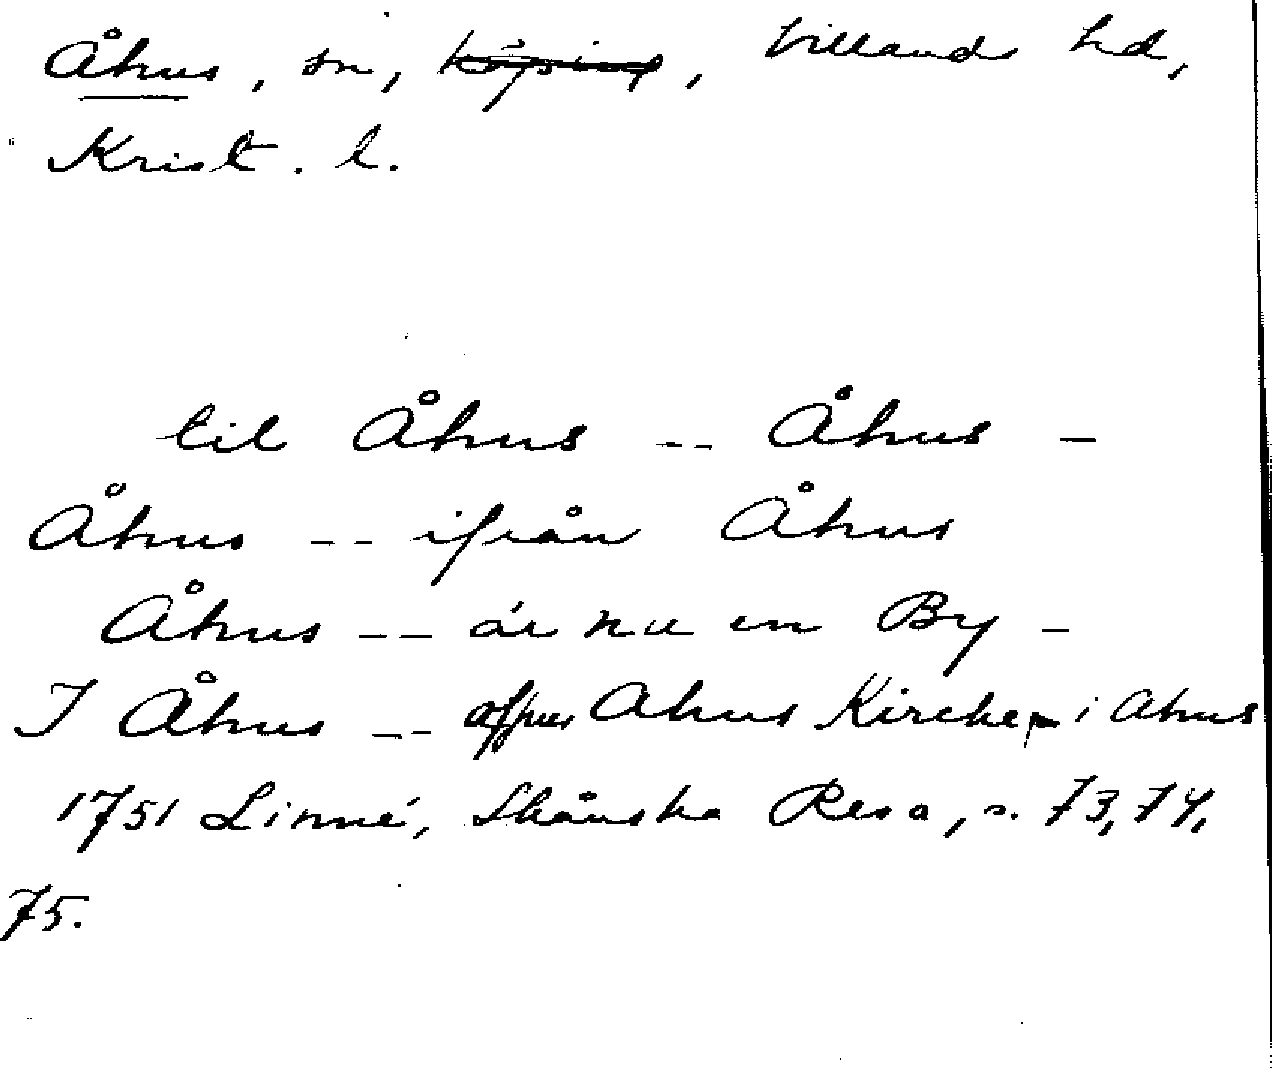 Åhus, sn, köping, Villands hd,
Krist. l.
til Åhus -- Åhus -
Åhus -- ifrån Åhus
Åhus -- är nu en By -
I Åhus -- Ahus Kirche i Ahus
1751 Linné, Skånska Resa, s. 73, 74,
75.